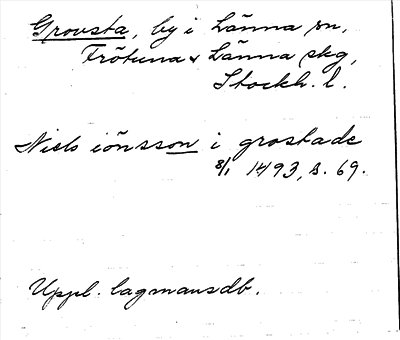 Grovsta, by i Länna sn,
Frötuna & Länna skg,
Stockh. l.
Niels iönsson i grostade
8/1 1493, s. 69.
Uppl. lagmansdb.